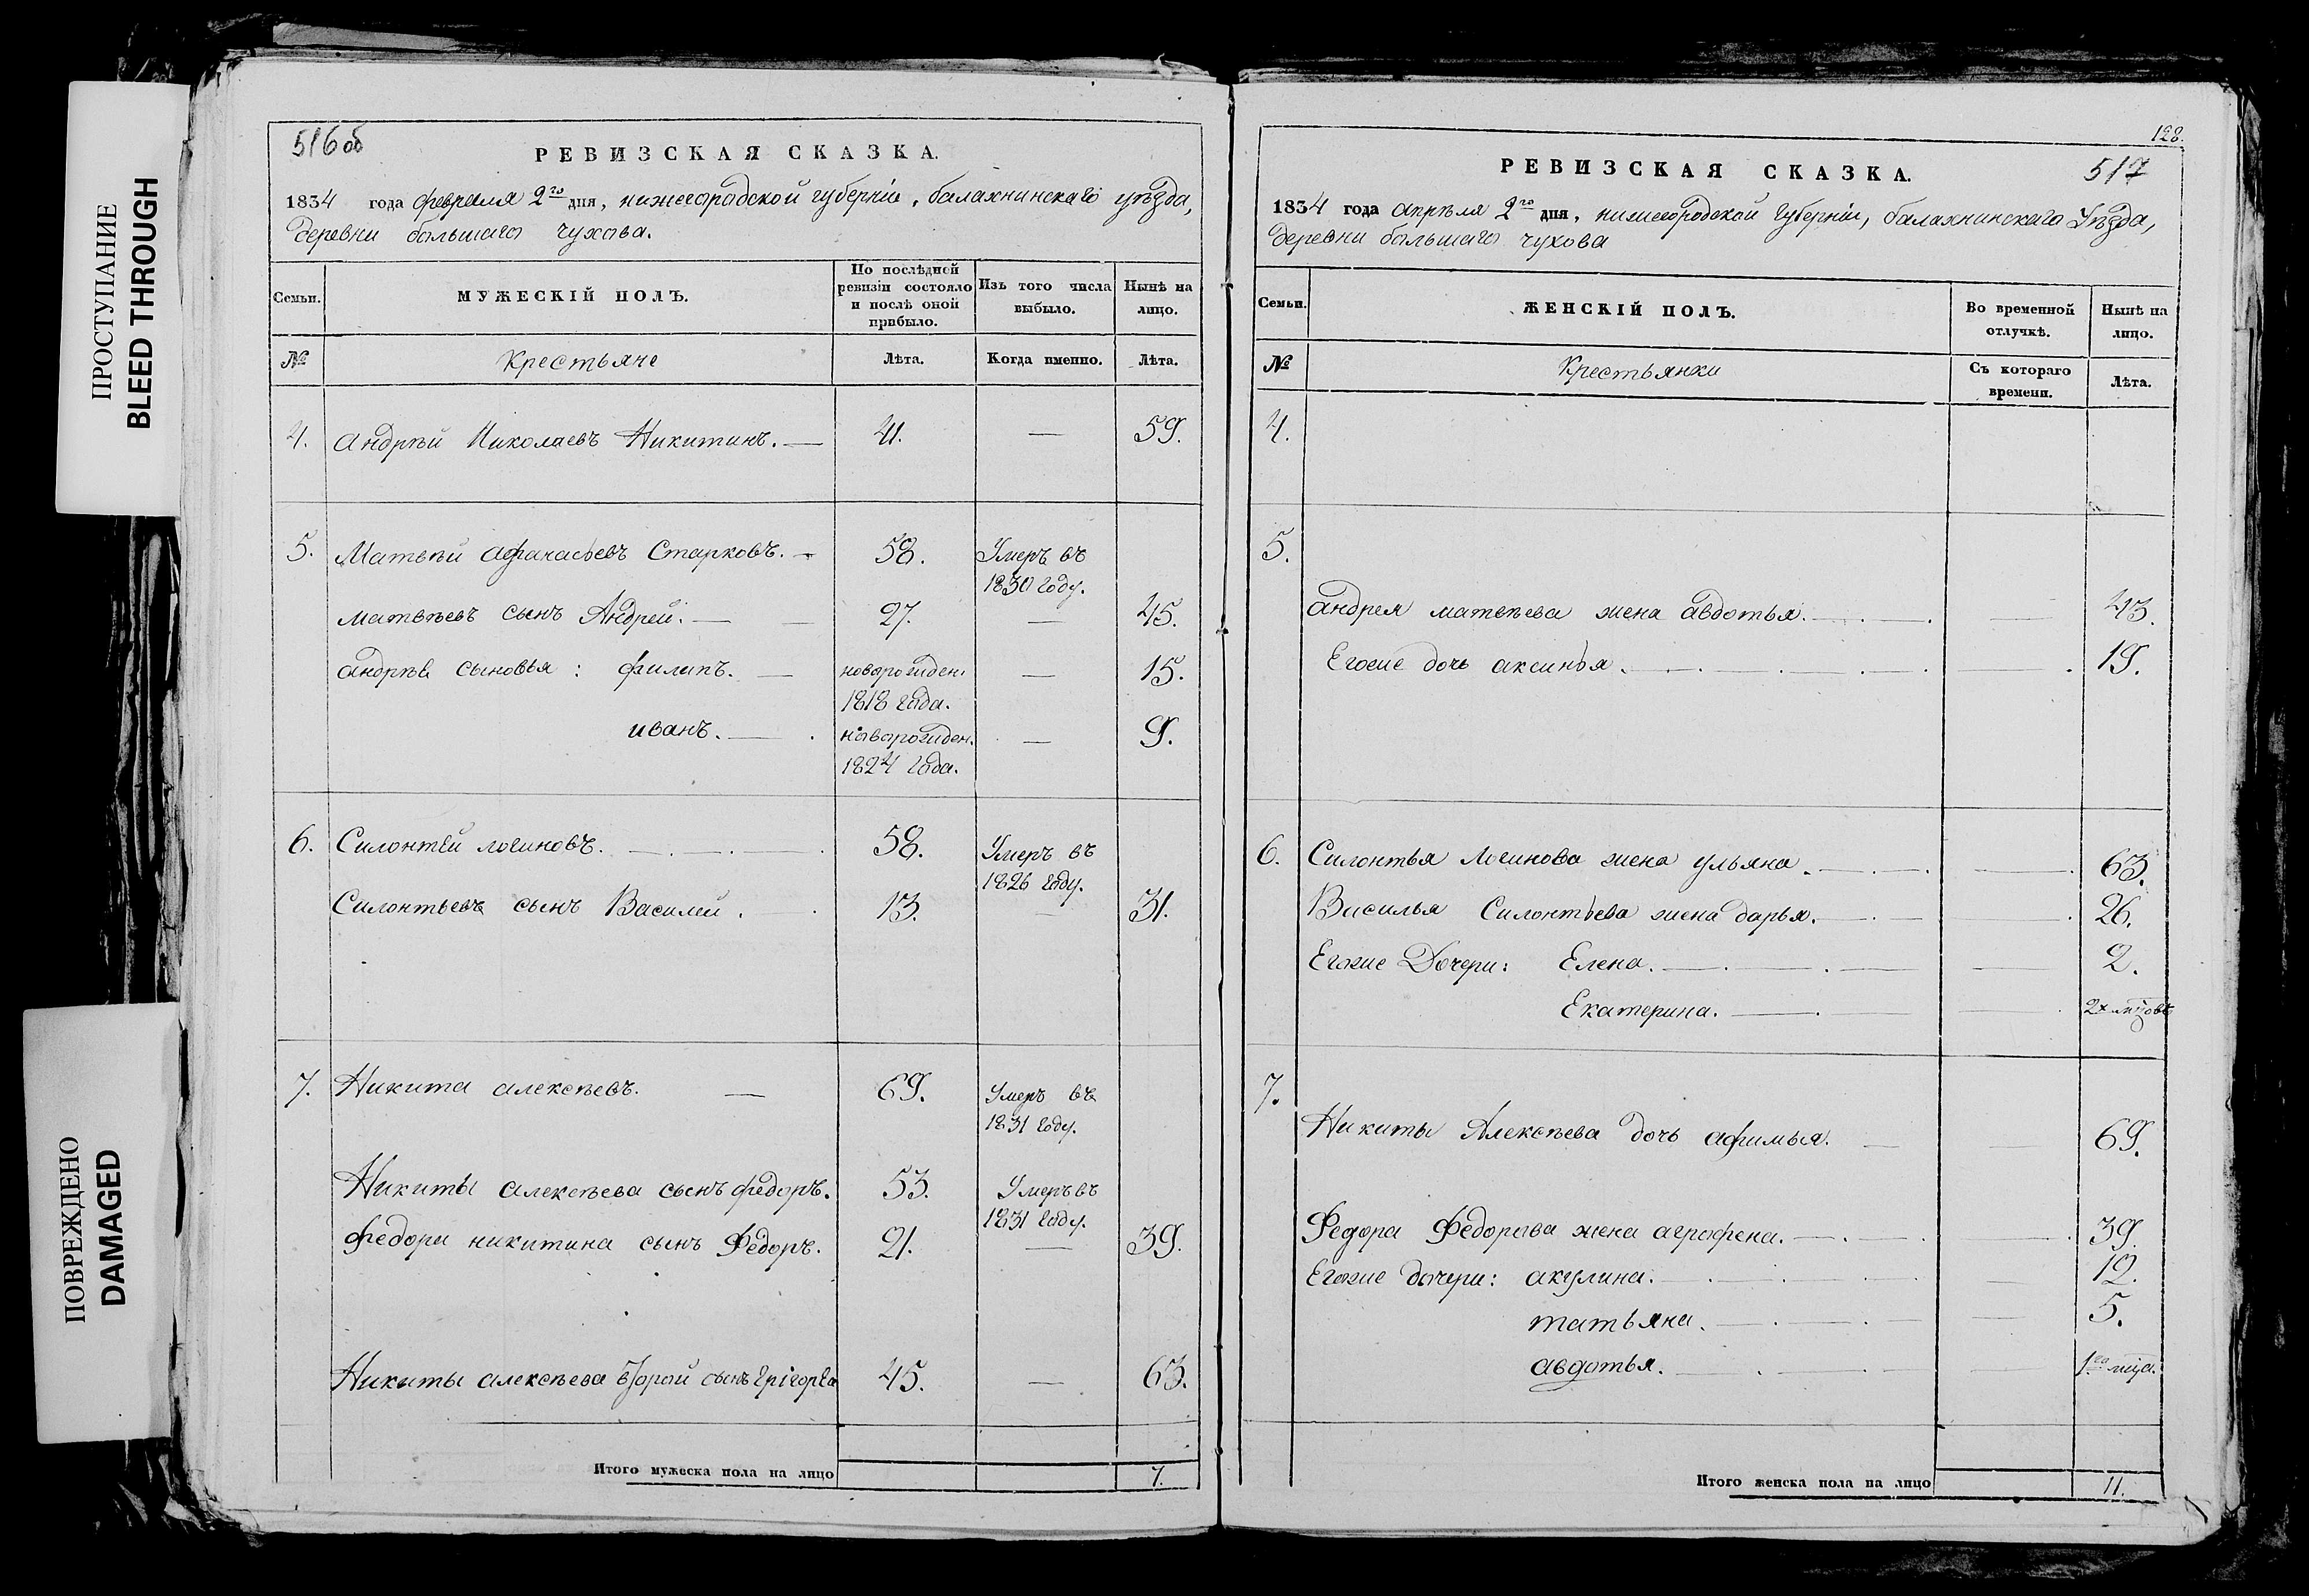 ПРОСТУПАНИЕ
BLEED THROUGH
ПОВРЕЖДЕНО
DAMAGED
516об
РЕВИЗСКАЯ СКАЗКА.
1834 года февраля 2го дня, нижегородской губернiи, балахнинскаго уѣзда,
деревни большаго чухова.
Семьи. МУЖЕСКІЙ ПОЛЪ. По послѣдней ревизіи состояло и послѣ оной прибыло. Изъ того числа выбыло. Нынѣ на лицо.
№ Крестьяне Лѣта. Когда именно. Лѣта.
4. андрѣй Николаевъ Никитинъ. — 41. — 59.
5. Матвѣй афанасьевъ Старковъ. — 58. Умеръ въ
1830 году.
матвѣевъ сынъ Андрей. — — 27. — 45.
андрѣя сыновья: филипъ. — новорожден. — 15.
1818 года.
иванъ. — новорожден. — 9.
1824 года.
6. Силонтѣй логиновъ. — 58. Умеръ въ
1826 году.
Силонтьевъ сынъ Василей. 13. — 31.
7. Никита алексѣевъ. — 69. Умеръ въ
1831 году.
Никиты алексѣева сынъ федоръ. 53. Умеръ въ
1831 году.
федора никитина сынъ Федоръ. 21. — 39.
Никиты алексѣева второй сынъ 45. — 63.
Итого мужеска пола на лицо 7.
128.
517
РЕВИЗСКАЯ СКАЗКА.
1834 года апрѣля 2го дня, нижегородской губернiи, балахнинскаго Уѣзда,
деревни большаго чухова
Семьи. ЖЕНСКІЙ ПОЛЪ. Во временной отлучкѣ. Нынѣ на лицо.
№ Крестьянки Съ котораго времени. Лѣта.
4.
5.
андрея матвѣева жена авдотья. — — 43.
Егоже дочь аксинья. — — 19.
6. Силонтья Логинова жена ульяна. — — 63.
Василья Силонтьева жена дарья. — 26.
Егоже Дочери: Елена. — — 2.
Екатерина. — — 2х
7.
Никиты Алексѣева дочь афимья. — — 69.
Федора Федорова жена аграфена. — — 39.
Егоже дочери: акулина. — 12.
татьяна. — — 5.
авдотья. — 1го мца.
Итого женска пола на лицо 11.